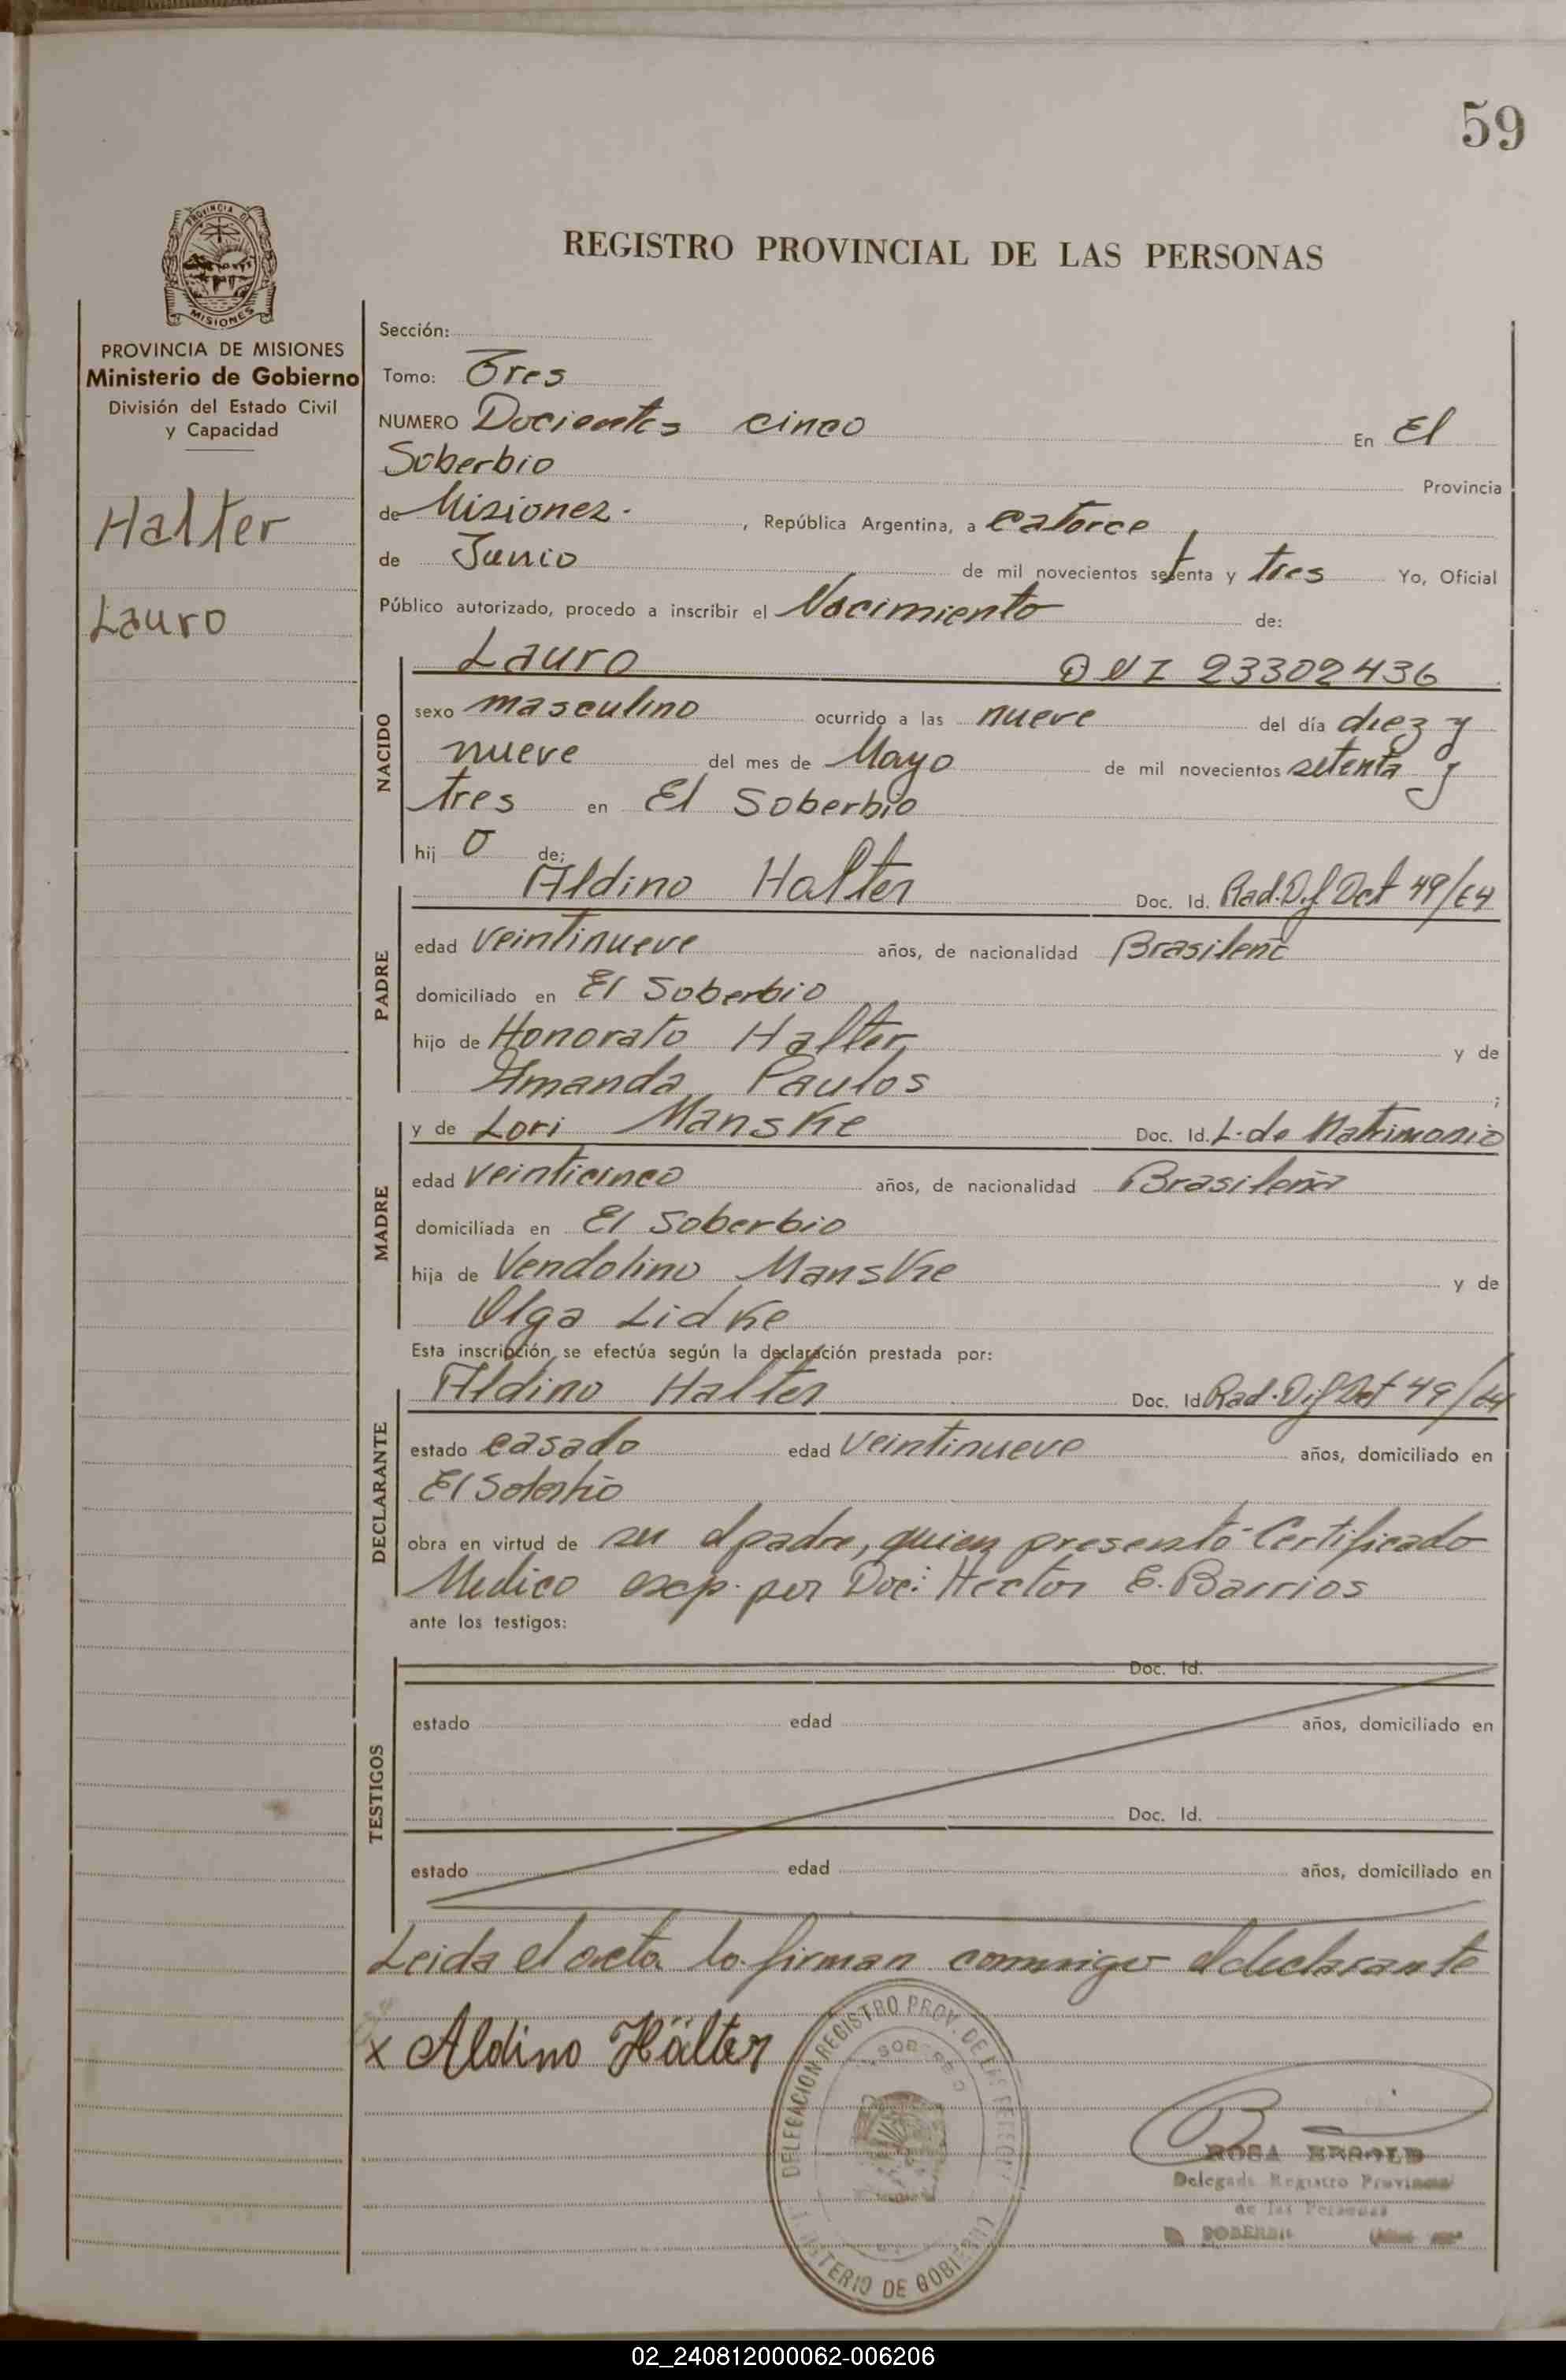 59
PROVINCIA DE
MISIONES
REGISTRO PROVINCIAL DE LAS PERSONAS
PROVINCIA DE MISIONES
Ministerio de Gobierno
División del Estado Civil
y Capacidad
Halter
Lauro
Sección:
Tomo: Tres
NUMERO Docientos cinco En El
Soberbio Provincia
de Misiones. , República Argentina, a catorce
de Junio de mil novecientos setenta y tres Yo, Oficial
Público autorizado, procedo a inscribir el Nacimiento de:
NACIDO
Lauro DNI 23302436
sexo masculino ocurrido a las nueve del día diez y
nueve del mes de Mayo de mil novecientos setenta y
tres en El Soberbio
hij o de:
PADRE
Aldino Halter Doc. Id. Rad. Dif Det 49/64
edad veintinueve años, de nacionalidad Brasileño
domiciliado en El Soberbio
hijo de Honorato Halter y de
Amanda Paulos ;
MADRE
y de Lori Manske Doc. Id. L. de Matrimonio
edad veinticinco años, de nacionalidad Brasileña
domiciliada en El Soberbio
hija de Vendolino Manske y de
Olga Lidke
Esta inscripción se efectúa según la declaración prestada por:
DECLARANTE
Aldino Halter Doc. Id Rad. Dif Det 49/64
estado casado edad veintinueve años, domiciliado en
El Soberbio
obra en virtud de su el padre, quien presentó Certificado
Medico exp. por Doc: Hector E. Barrios
ante los testigos:
TESTIGOS
Doc. Id.
estado edad años, domiciliado en
Doc. Id.
estado edad años, domiciliado en
Leida el acta la firman conmigo el declarante
x Aldino Hälter
DELEGACION REGISTRO PROV. DE LAS
MINISTERIO DE GOBIERNO
ROSA
Delegada Registro Provincial
de las Personas
SOBERBIO
02_240812000062-006206